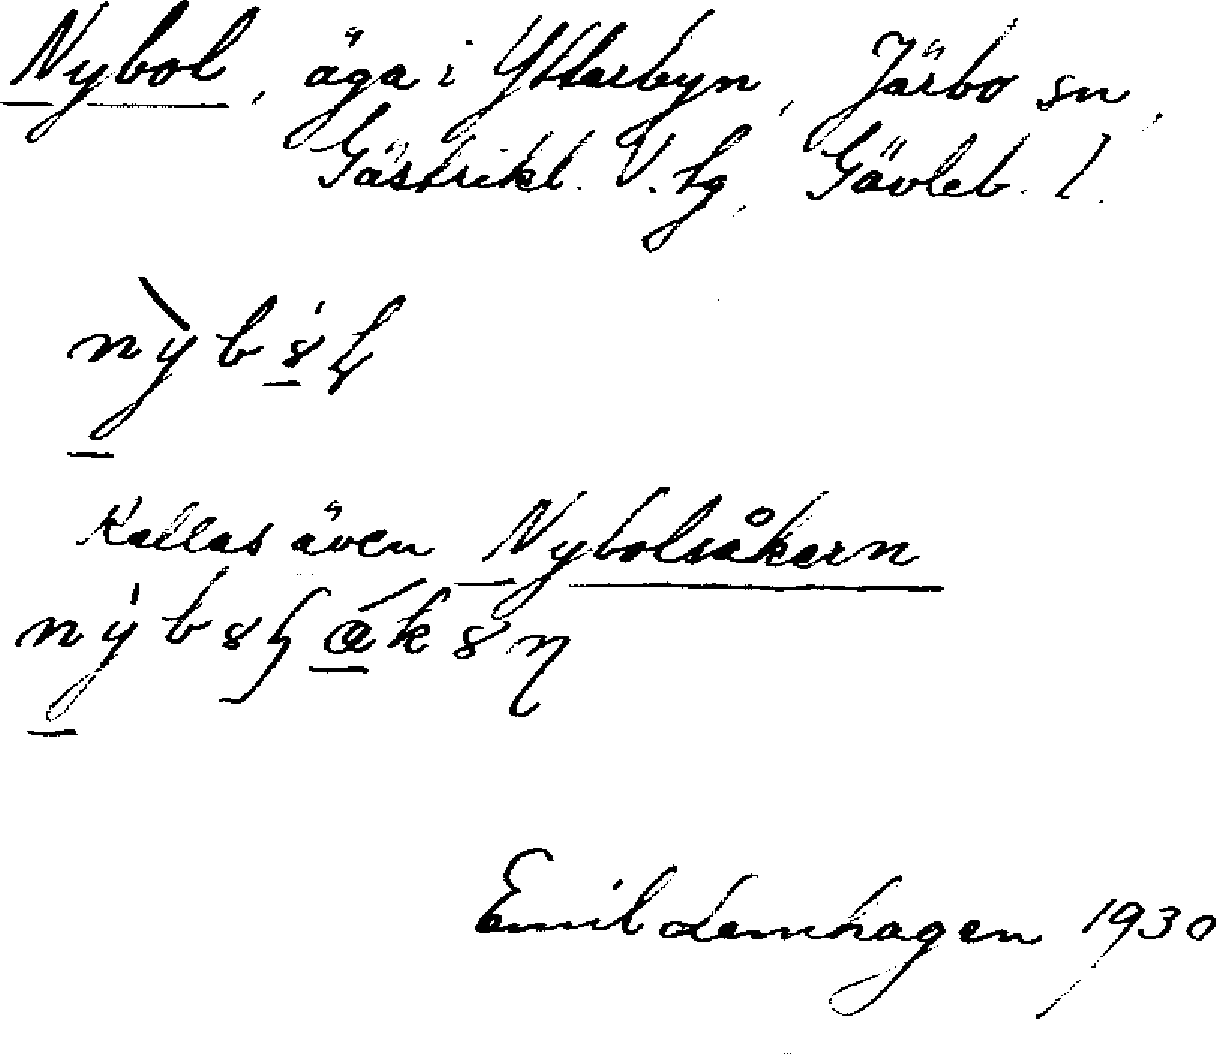 Nybol, äga i Ytterbyn, Järbo sn,
Gästrikl. V. tg, Gävleb. l.
Kallas även Nybolsåkern
Emil Lemhagen 1930